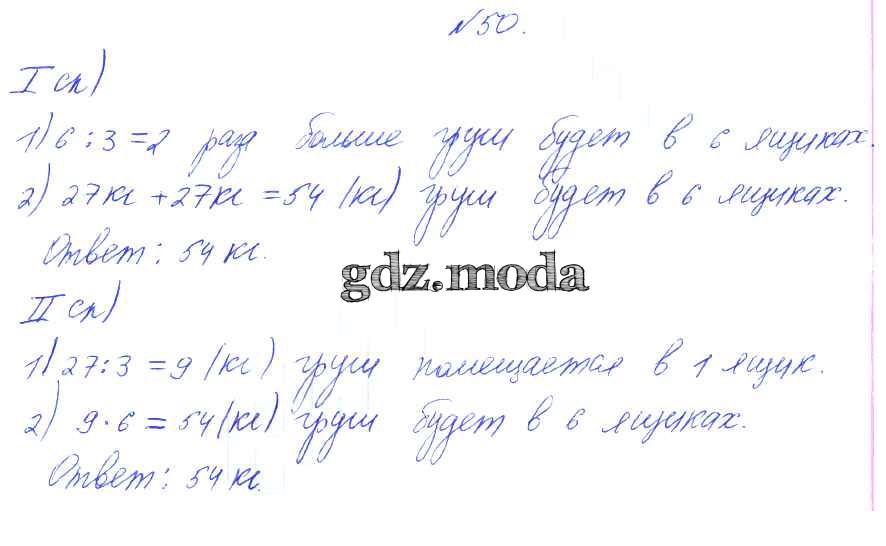 №50.
I сп)
1) 6 : 3 = 2 раза больше груш будет в 6 ящиках.
2) 27кг + 27кг = 54 (кг) груш будет в 6 ящиках.
Ответ: 54 кг.
gdz.moda
II сп)
1) 27:3 = 9 (кг) груш помещается в 1 ящик.
2) 9·6 = 54(кг) груш будет в 6 ящиках.
Ответ: 54 кг.